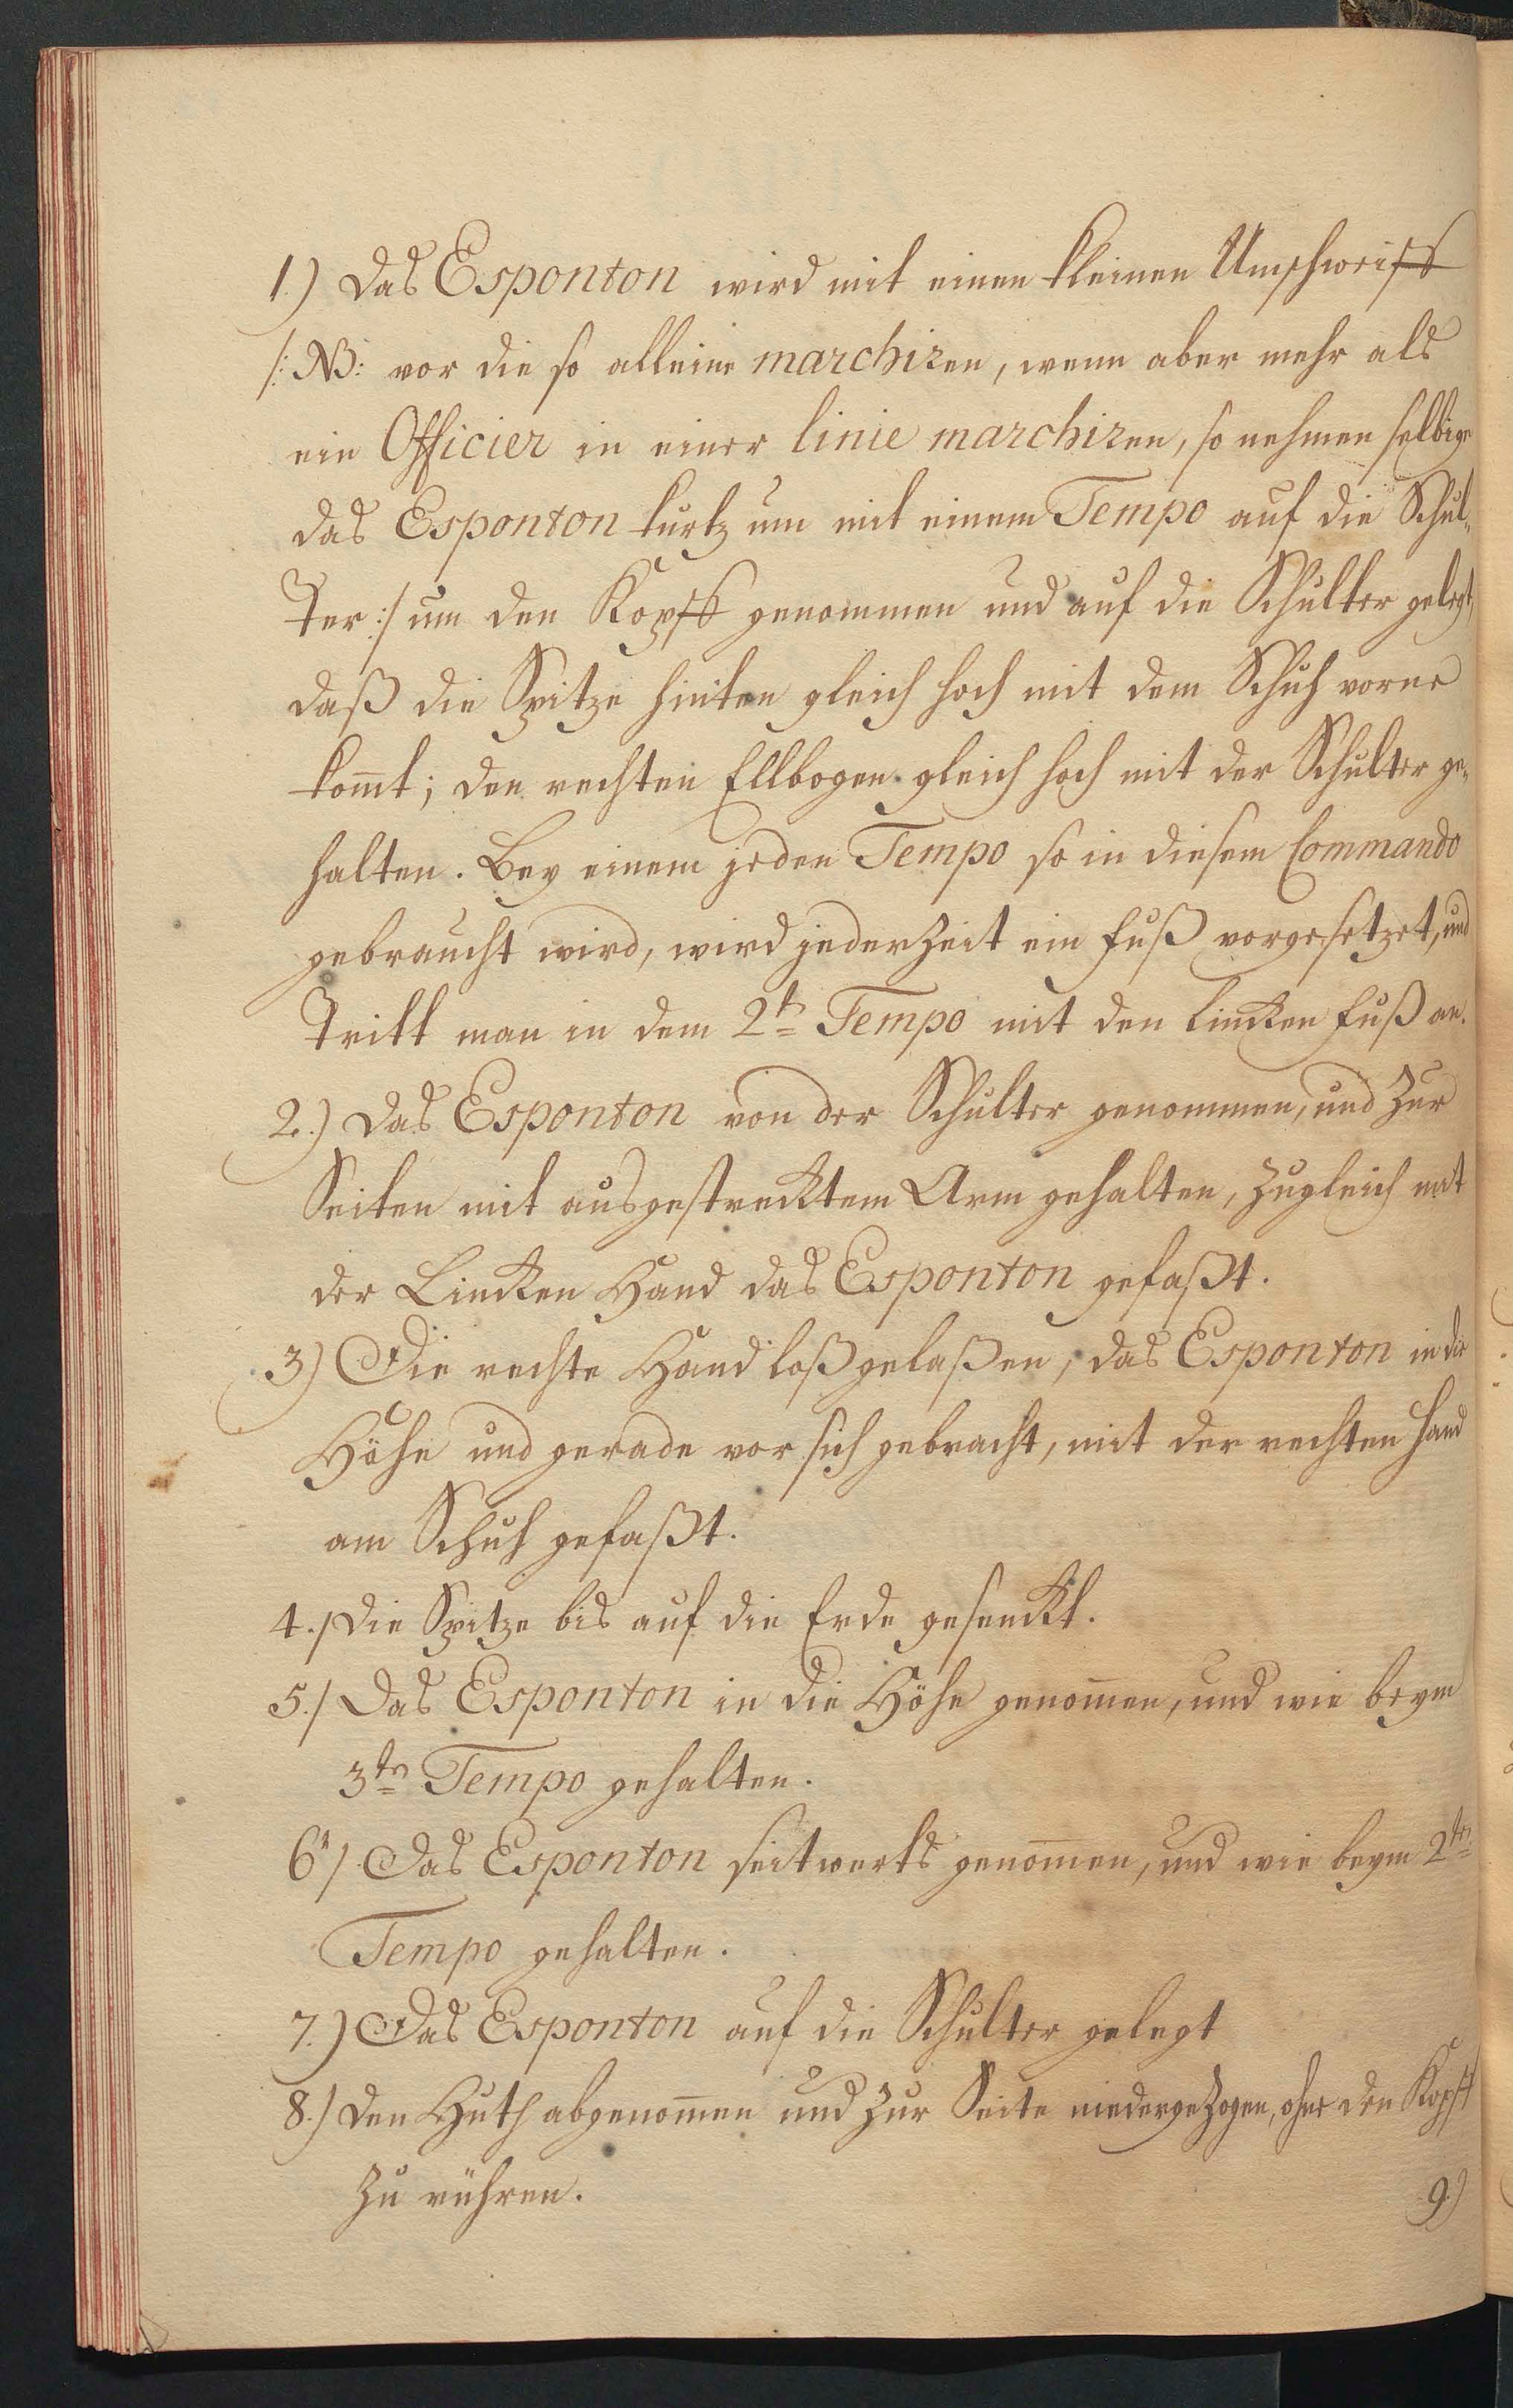 1.) Das Esponton wird mit einen kleinen Umschweiff
/: NB: vor die so alleine marchiren, wenn aber mehr als
ein Officier in einer linie marchiren, so nehmen selbige
das Esponton kurtz um mit einem Tempo auf die Schul-
ter :/ um den Kopff genommen und auf die Schulter gelegt,
daß die Spitze hinten gleich hoch mit dem Schuh vorne
kom̄t; den rechten Ellbogen gleich hoch mit der Schulter ge-
halten. Bey einem jeden Tempo so in diesem Commando
gebraucht wird, wird jederzeit ein Fuß vorgesetzet, und
Tritt man in dem 2t Tempo mit den lincken Fuß an.
2.) Das Esponton von der Schulter genommen, und zur
Seiten mit ausgestrecktem Arm gehalten, zugleich mit
der Lincken Hand das Esponton gefaßt.
3) Die rechte Hand loßgelaßen, das Esponton in die
Höhe und gerade vor sich gebracht, mit der rechten Hand
am Schuh gefaßt.
4./ Die Spitze bis auf die Erde gesenckt.
5./ Das Esponton in die Höhe genom̄en, und wie beym
3ten Tempo gehalten.
6./ Das Esponton seitwerts genom̄en, und wie beym 2ten
Tempo gehalten.
7.) Das Esponton auf die Schulter gelegt
8.) Den Huth abgenom̄en und zur Seite niedergezogen, ohne den Kopff
zu rühren.
9.)